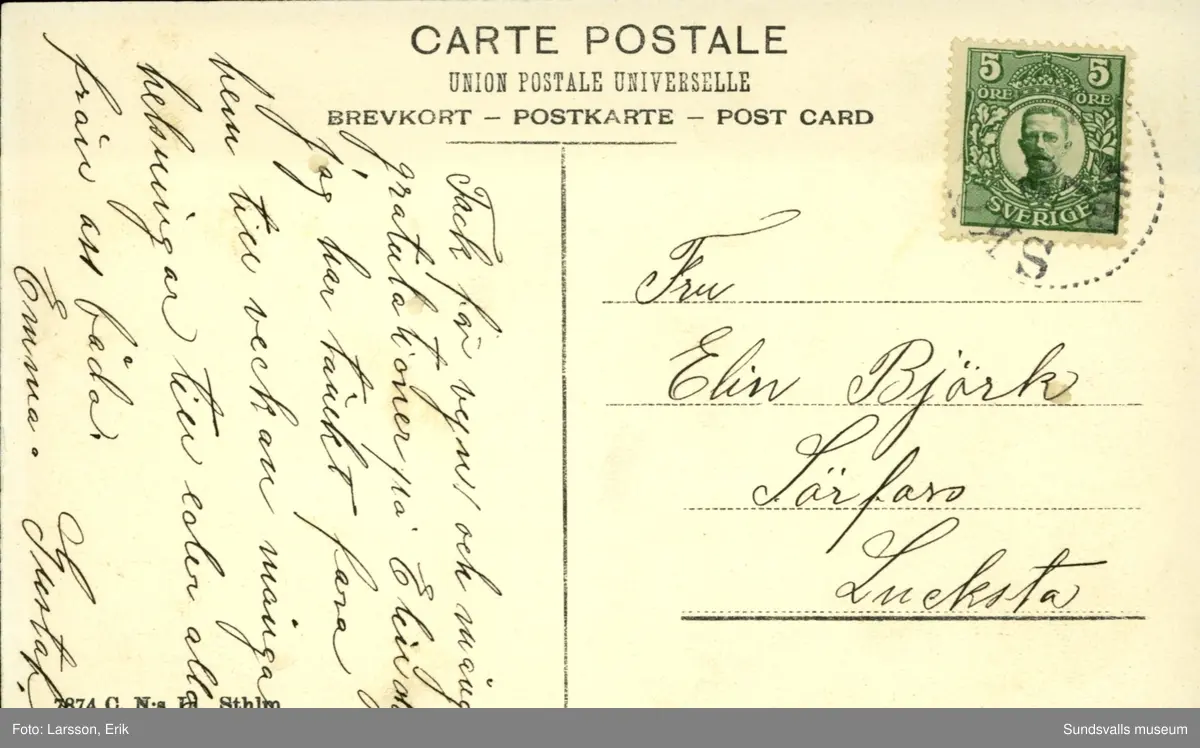 CARTE POSTALE
UNION POSTALE UNIVERSELLE
BREVKORT – POSTKARTE – POST CARD
5 5
ÖRE ÖRE
SVERIGE
Fru
Elin Björk
Sörfors
Lucksta
Tack för vyn! och mång
gratulationer på
jag har tänkt fara
hem till veckan många
helsningar till eder alla
från oss båda.
Emma o Gustaf.
7874 C. N:s Sthlm
Foto: Larsson, Erik
Sundsvalls museum